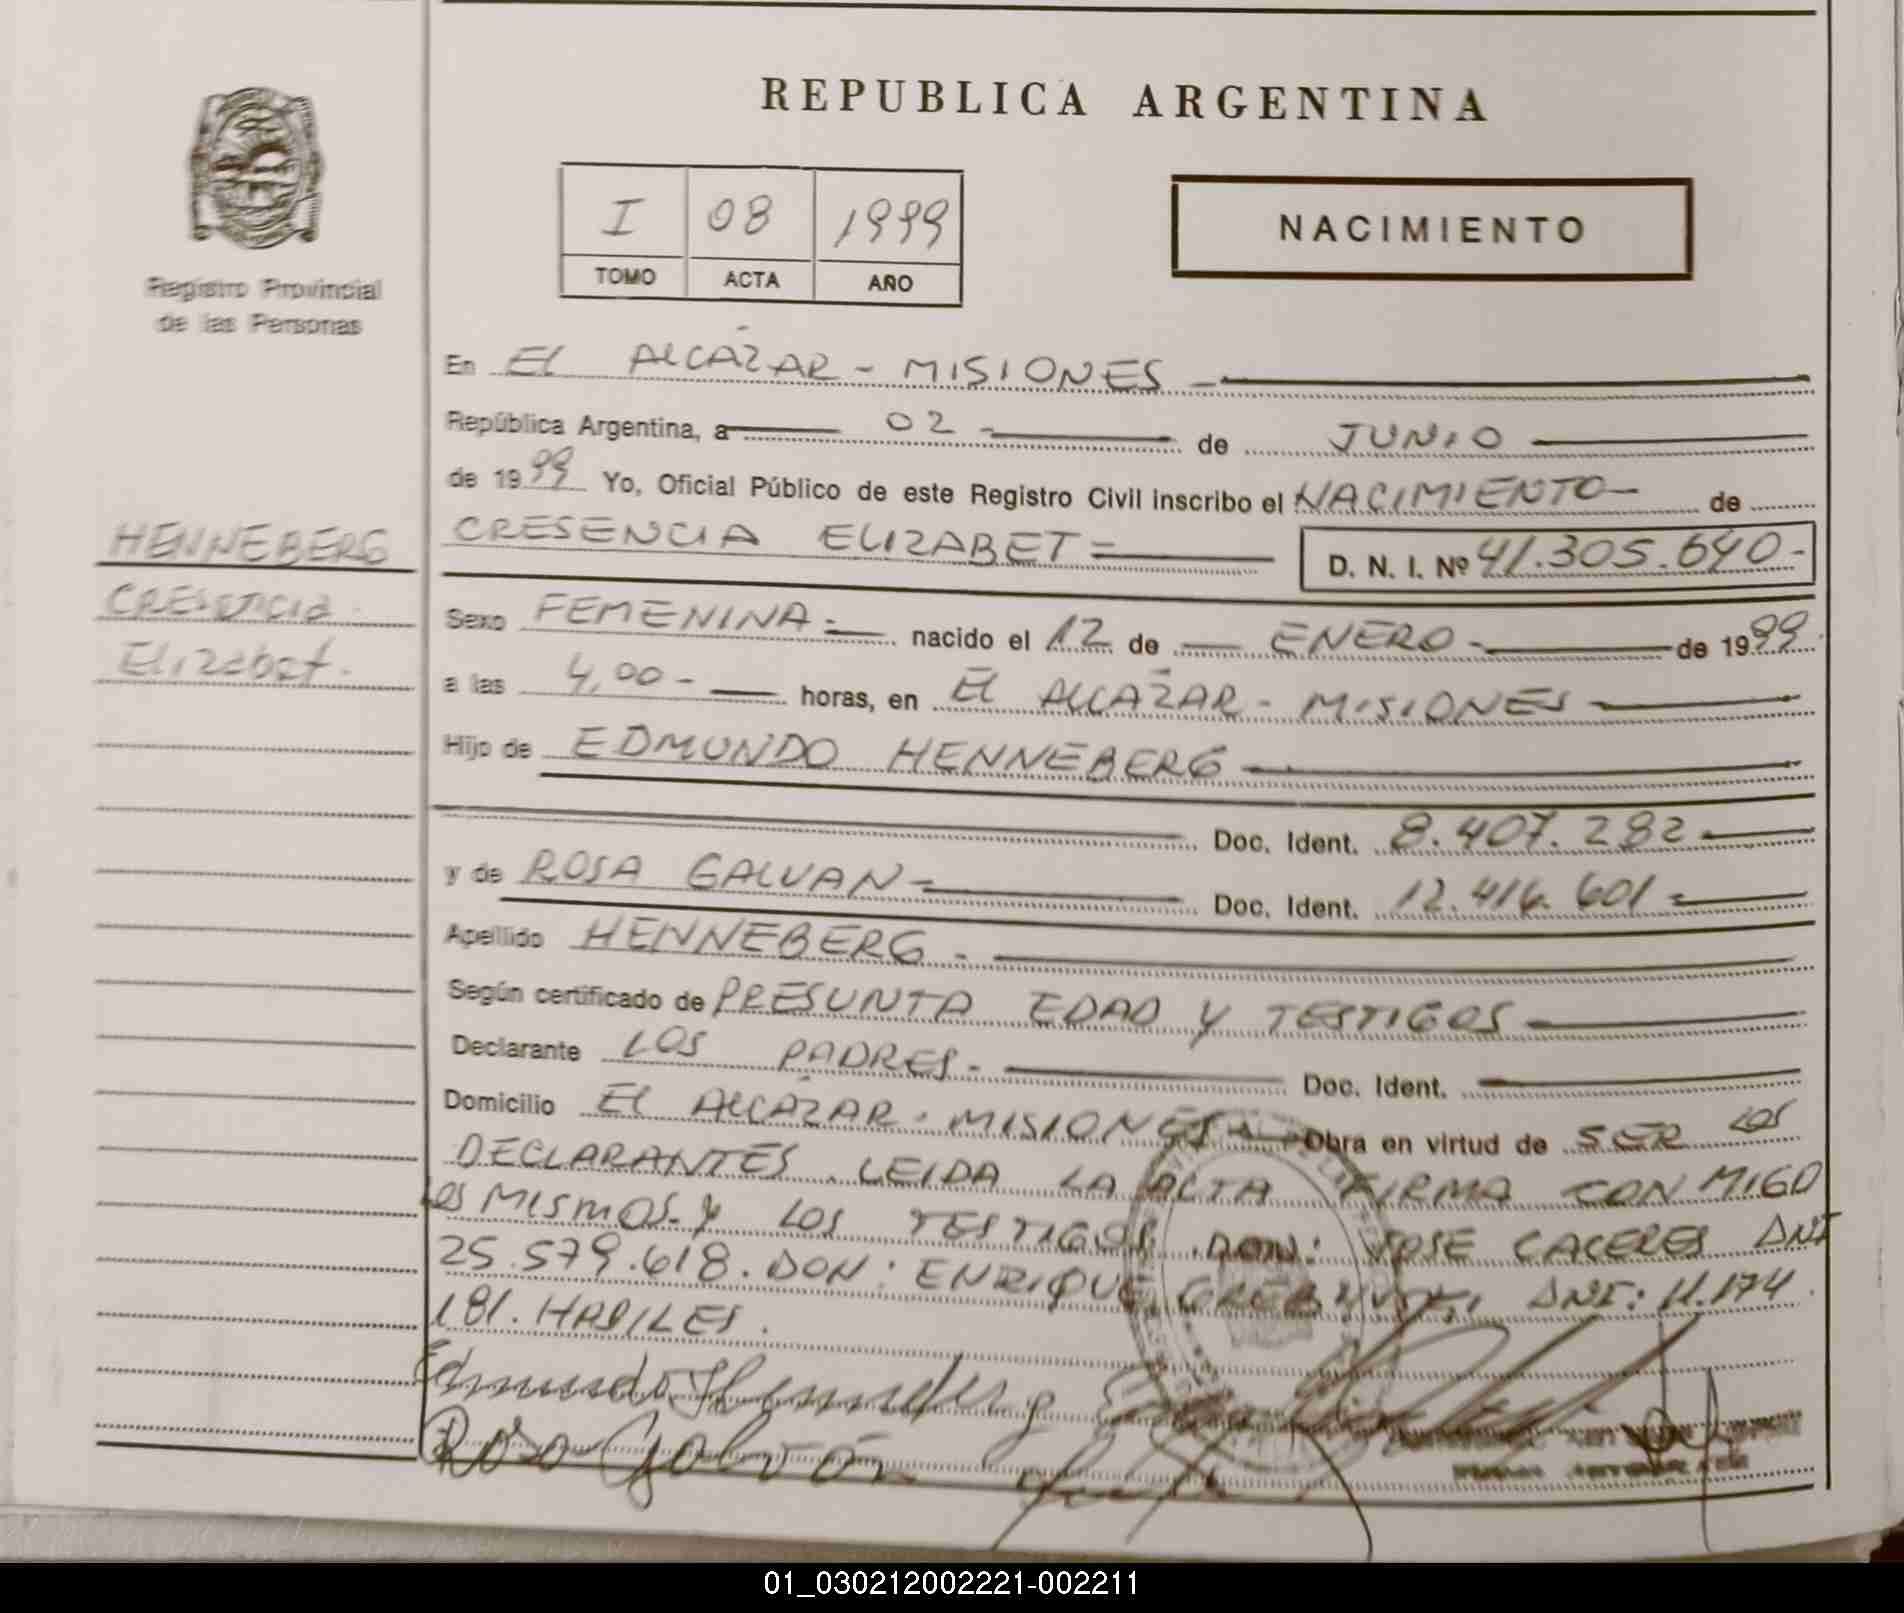 REPUBLICA ARGENTINA
I 08 1999
TOMO ACTA AÑO
NACIMIENTO
Registro Provincial
de las Personas
En EL ALCAZAR - MISIONES -
República Argentina, a 02 - de JUNIO
de 1999 Yo, Oficial Público de este Registro Civil inscribo el NACIMIENTO - de
HENNEBERG
CRESENCIA
Elizabet.
CRESENCIA ELIZABET = D. N. I. Nº 41.305.640-
Sexo FEMENINA = nacido el 12 de ENERO - de 1999
a las 4,00 - horas, en El ALCAZAR - MISIONES
Hijo de EDMUNDO HENNEBERG
Doc. Ident. 8.407.282
y de ROSA GALVAN - Doc. Ident. 12.416.601 =
Apellido HENNEBERG -
Según certificado de PRESUNTA EDAD Y TESTIGOS
Declarante LOS PADRES - Doc. Ident.
Domicilio El ALCAZAR - MISIONES Obra en virtud de SER LOS
DECLARANTES. LEIDA LA ACTA FIRMA CON MIGO
LOS MISMOS Y LOS TESTIGOS DON: JOSE CACERES DNI
25.579.618. DON: ENRIQUE DNI: 11.174
181. HABILES.
Edmundo Henneberg
Rosa Galván
01_030212002221-002211